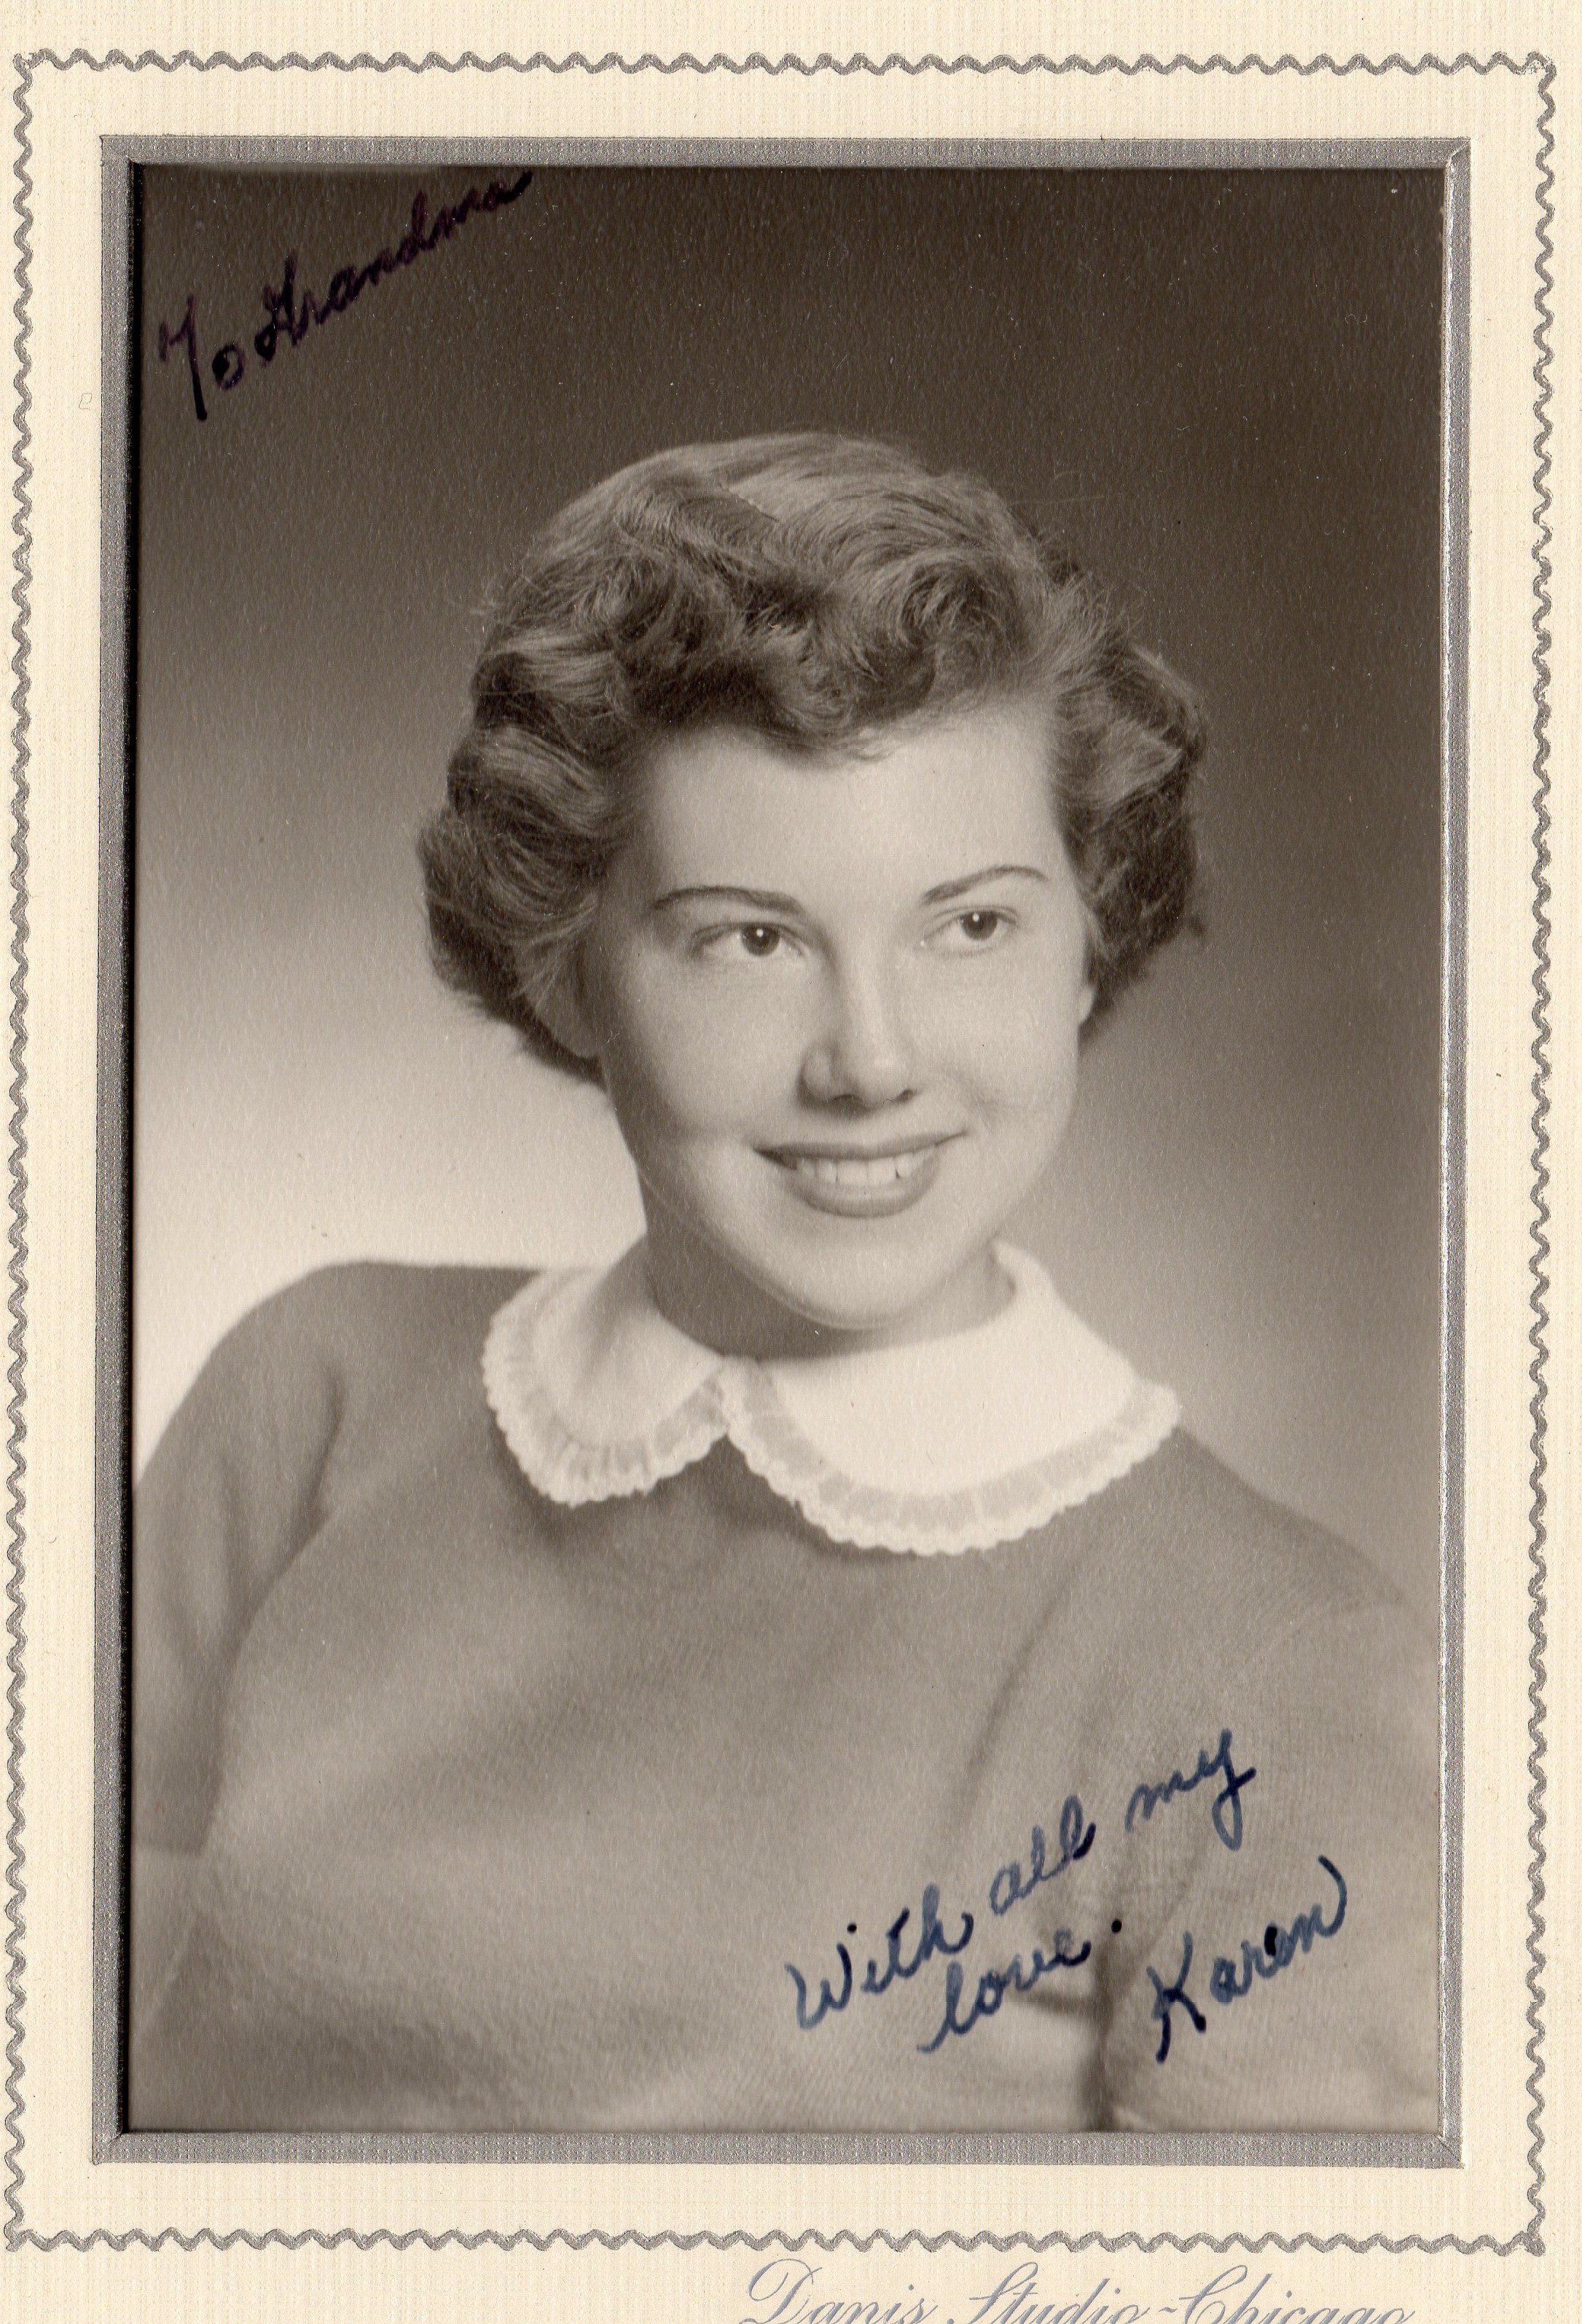 To Grandma
With all my
love.
Karen
Danis Studio - Chicago